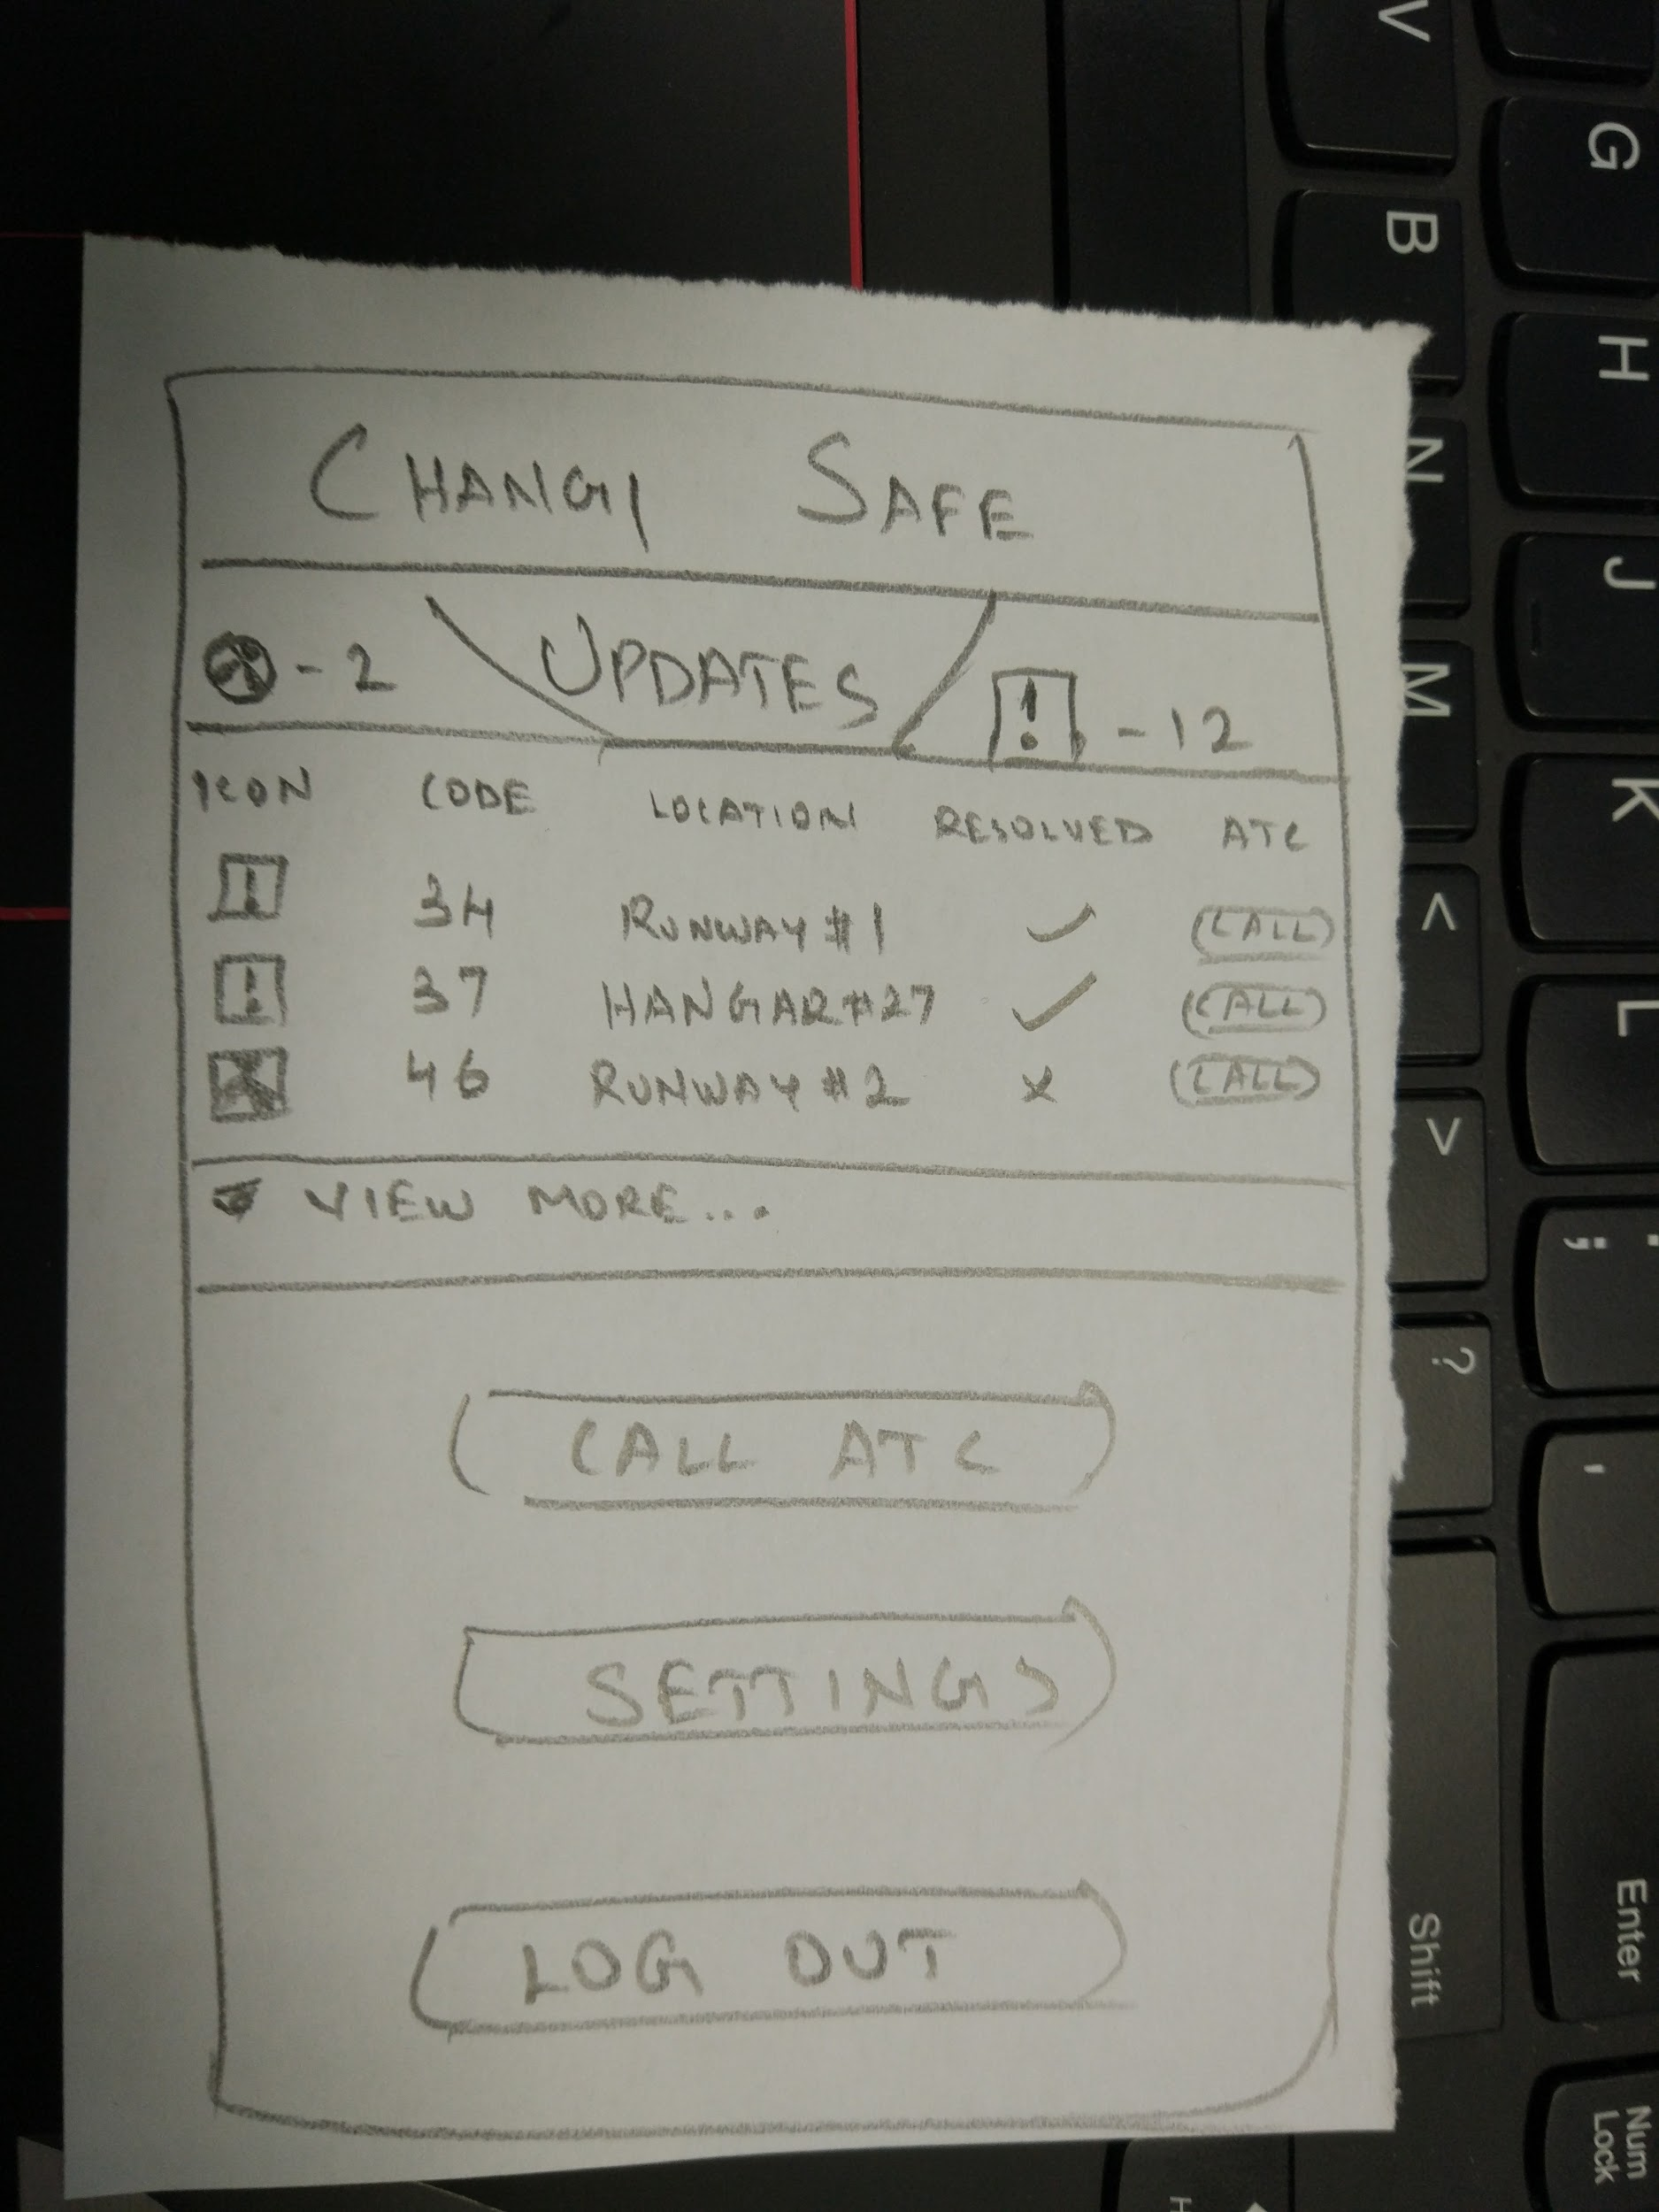 CHANGI SAFE
- 2 UPDATES ! - 12
ICON CODE LOCATION RESOLVED ATC
! 34 RUNWAY #1 ✓ CALL
! 37 HANGAR #27 ✓ CALL
46 RUNWAY #2 x CALL
VIEW MORE...
CALL ATC
SETTINGS
LOG OUT
V
G
B
H
N
J
M
K
<
L
>
;
?
'
Enter
Shift
Num
Lock